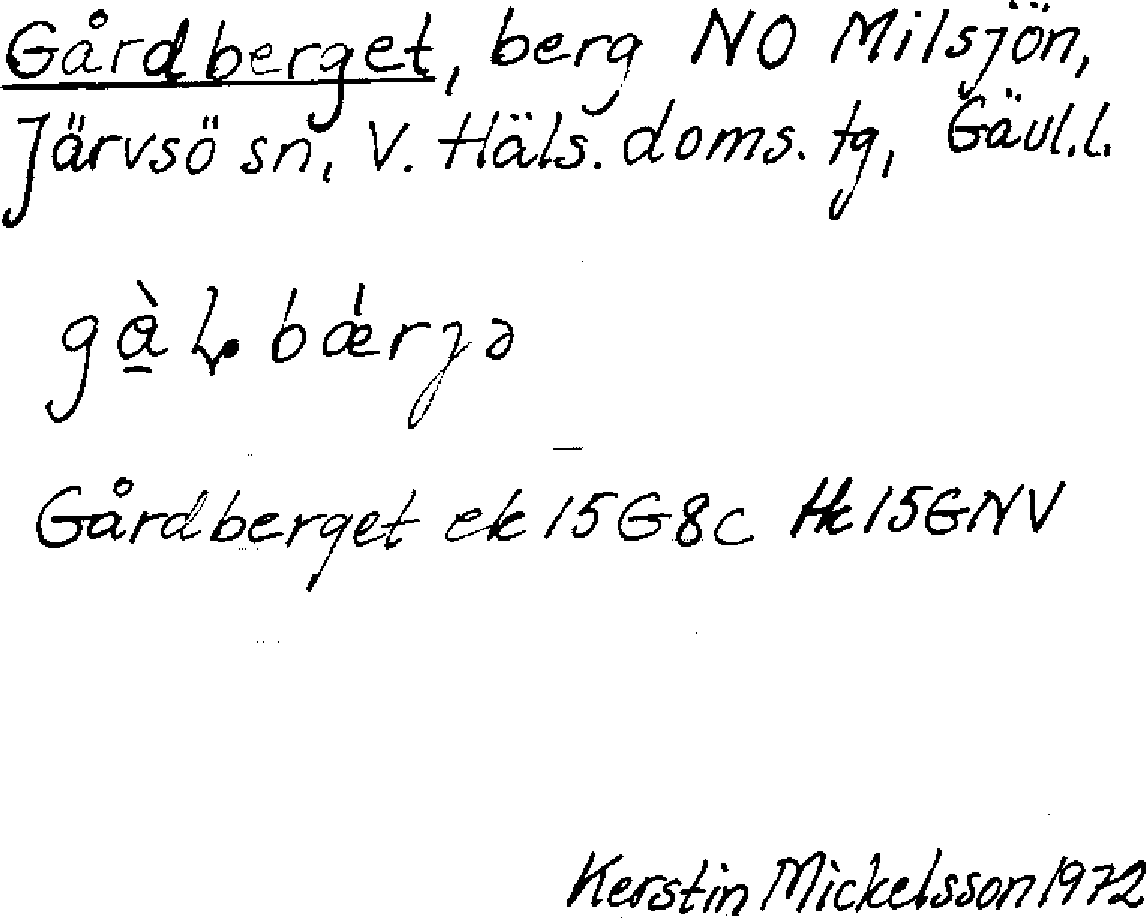 Gårdberget, berg NO Milsjön,
Järvsö sn, V. Häls. doms. tg, Gävl.l.
Gårdberget ek 15G8c Hk15GNV
Kerstin Mickelsson 1972